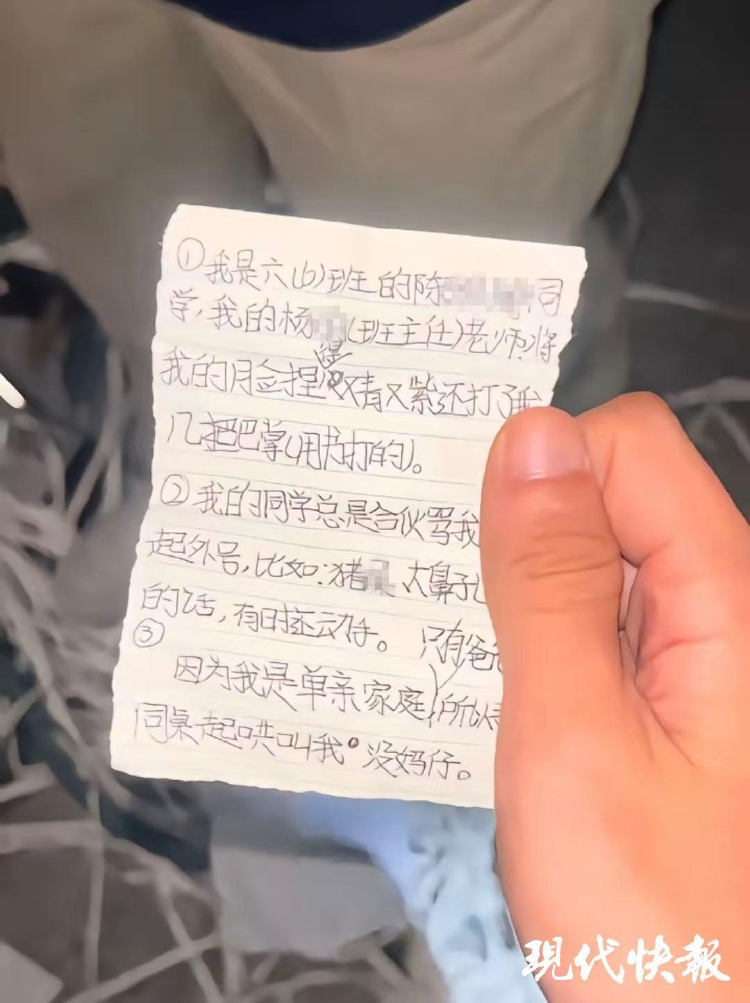 ①我是六(6)班的陈 同
学,我的杨 (班主任)老师将
得
我的脸捏 又青又紫还打了我
几把巴掌(用书打的)。
②我的同学总是合伙骂我
起外号,比如:猪 大鼻孔
的话,有时还动手。 只有爸
③
因为我是单亲家庭 所以
同桌起哄叫我 没妈仔。
現代快報